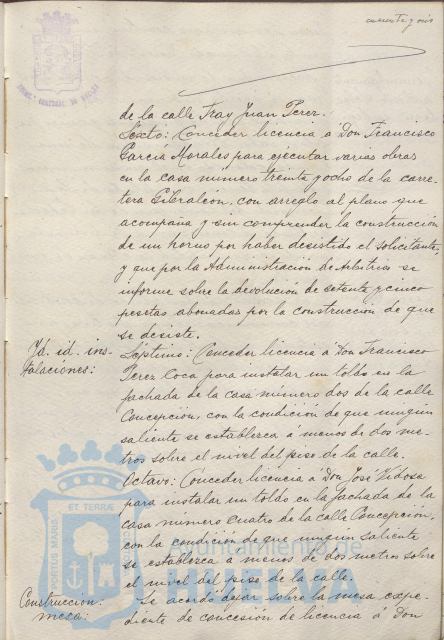 de la calle Fray Juan Perez.
Sexto: Conceder licencia á Don Francisco
García Morales para ejecutar varias obras
en la casa número treinta y ocho de la carre-
tera Gibraleón, con arreglo al plano que
acompaña y sin comprender la construcción
de un horno por haber desistido el solicitante,
y que por la Administración de Arbitrios se
informe sobre la devolución de setenta y cinco
pesetas abonadas por la construcción de que
se desiste.
Yd. id. ins-
talaciones:
Séptimo: Conceder licencia á Don Francisco
Perez Coca para instalar un toldo en la
fachada de la casa número dos de la calle
Concepción, con la condición de que ningun
saliente se establezca á menos de dos me-
tros sobre el nivel del piso de la calle.
Octavo: Conceder licencia á Don José Vidosa
para instalar un toldo en la fachada de la
casa número cuatro de la calle Concepción,
con la condición de que ningun saliente
se establezca á menos de dos metros sobre
el nivel del piso de la calle.
Construcción:
Se acordó dejar sobre la mesa expe-
diente de concesión de licencia á Don
PORTUS MARIS ET TERRÆ
Ayuntamiento de
HUELVA